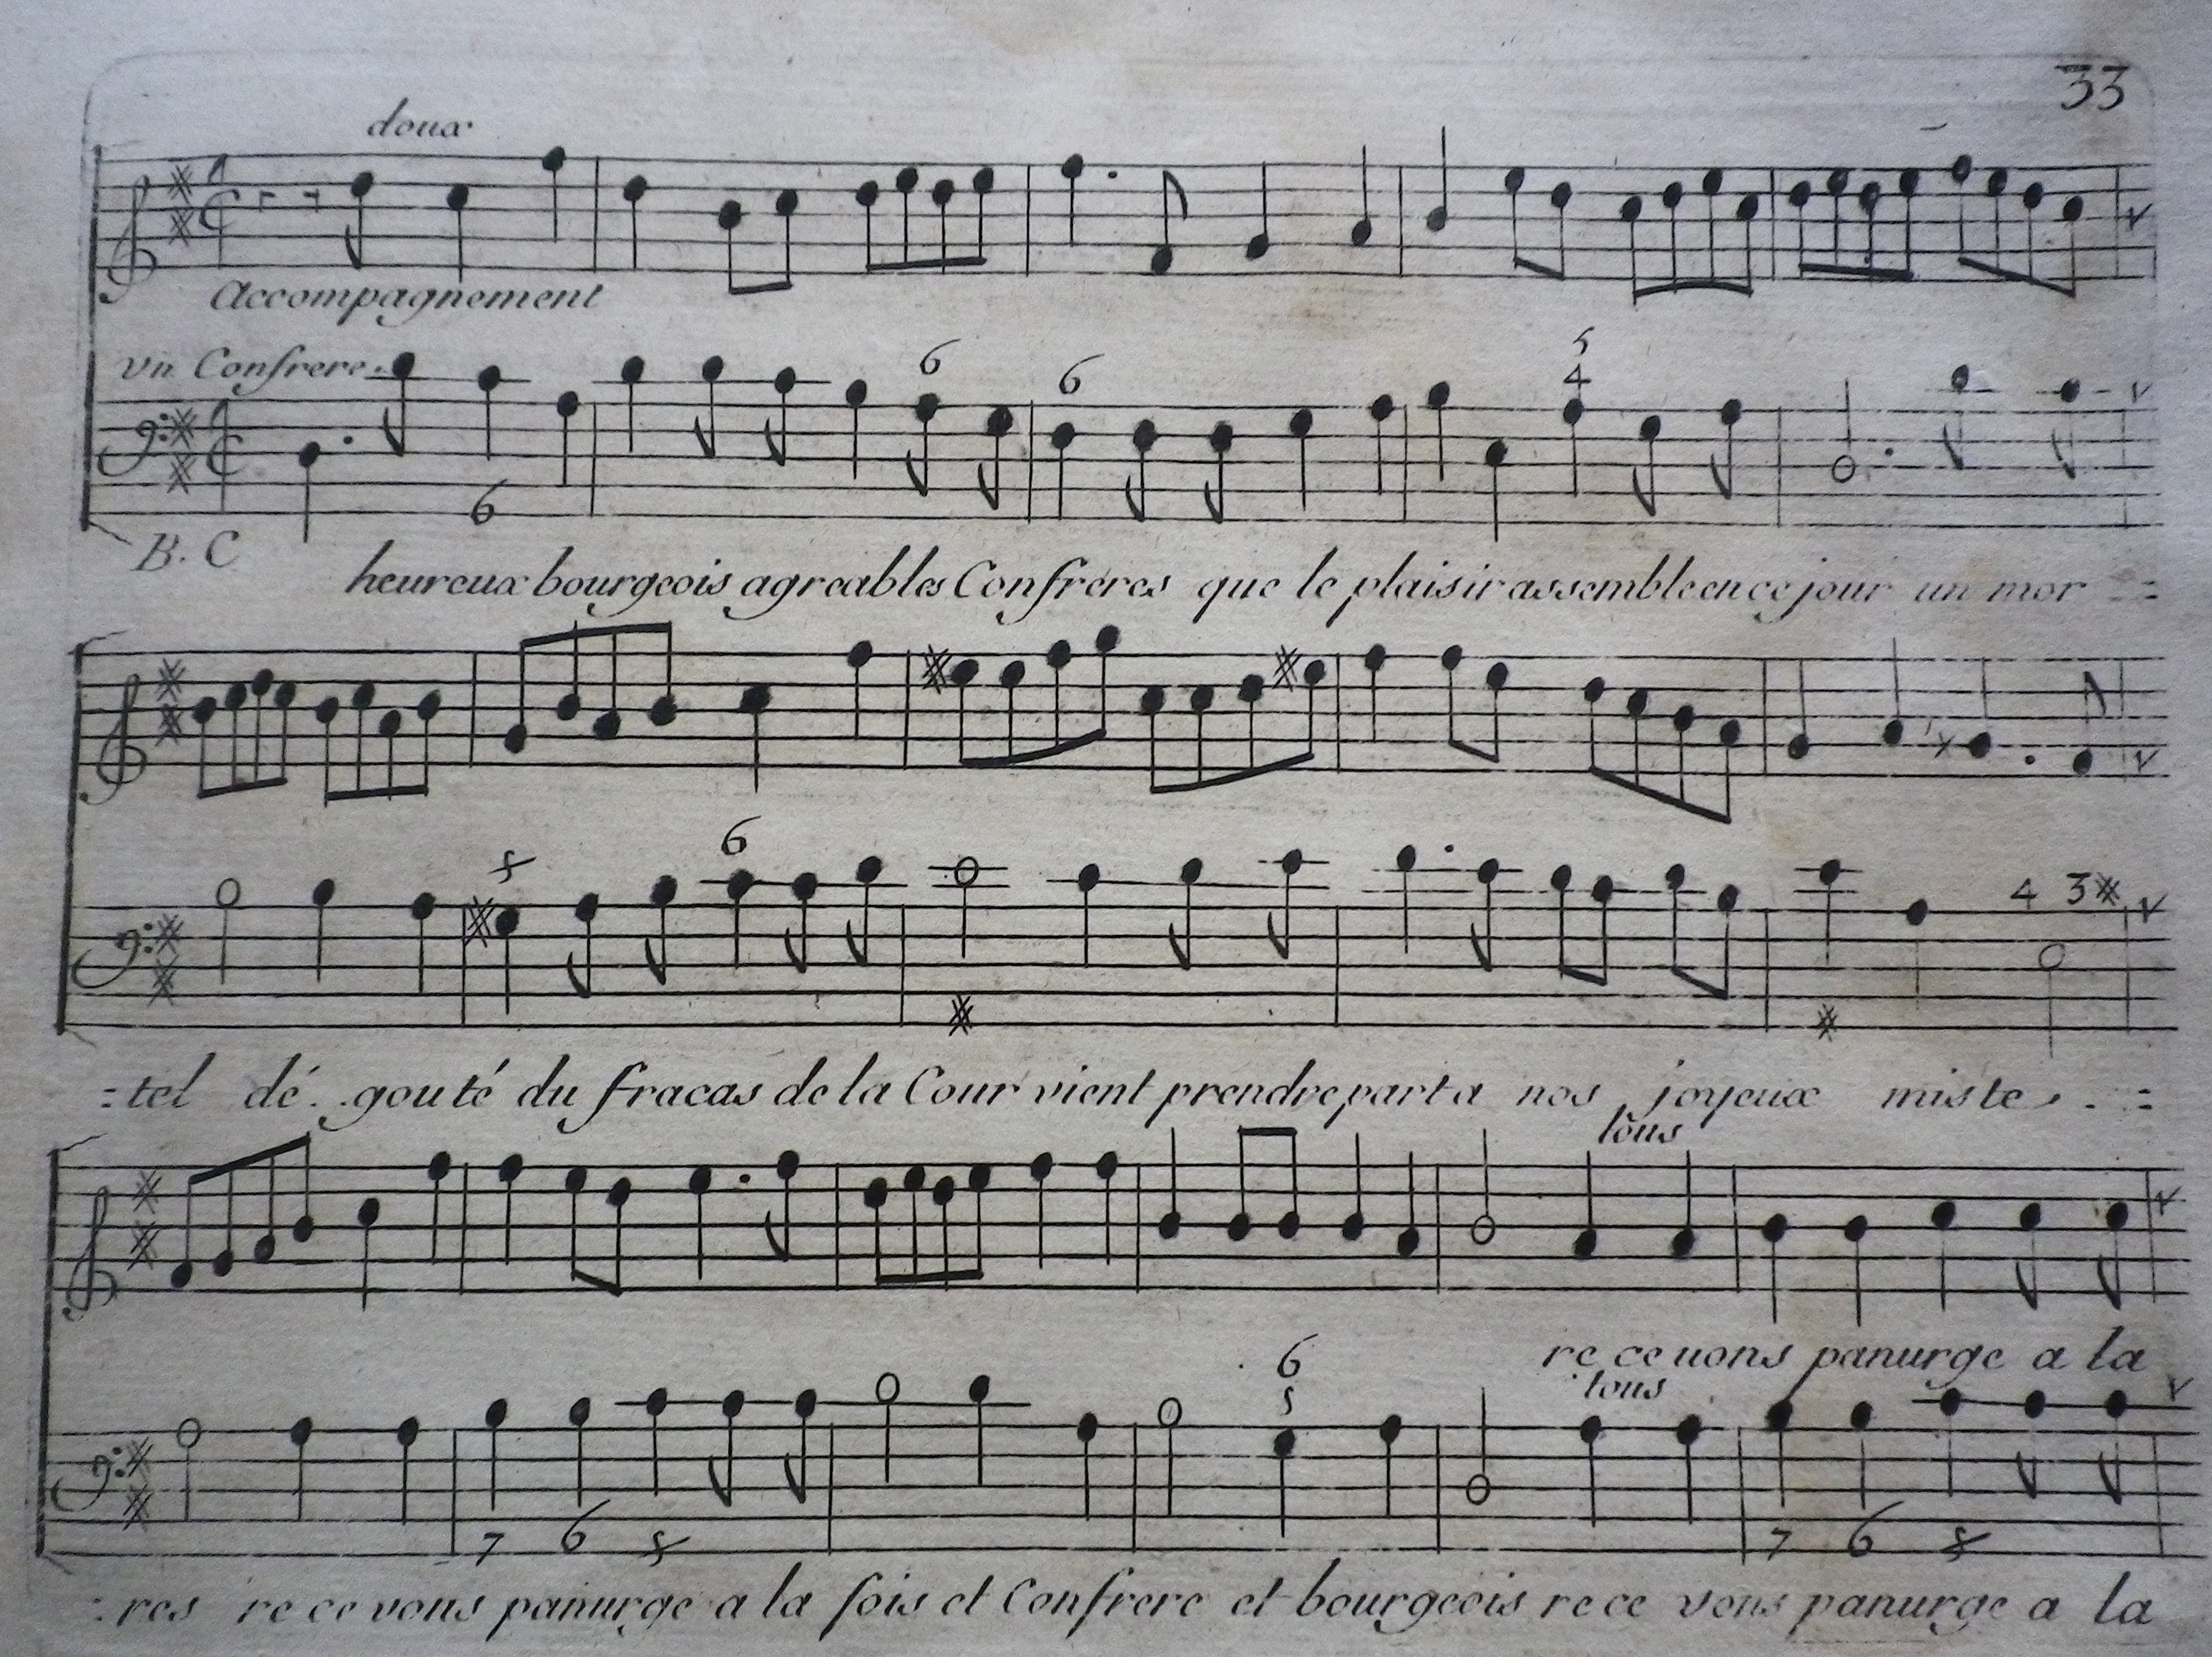 33
doux
Accompagnement
vn Confrere.
6 6 5
4
6
B. C
heureux bourgeois agreables Confréres que le plaisir assemble en ce jour un mor =
5 6 4 3
=tel dé. gouté du fracas de la Cour vient prendre part a nos joyeux miste. =
tous
re ce uons panurge a la
6
5
tous
7 6 5 7 6 5
=res re ce vons panurge a la fois et Confrere et bourgeois re ce vons panurge a la